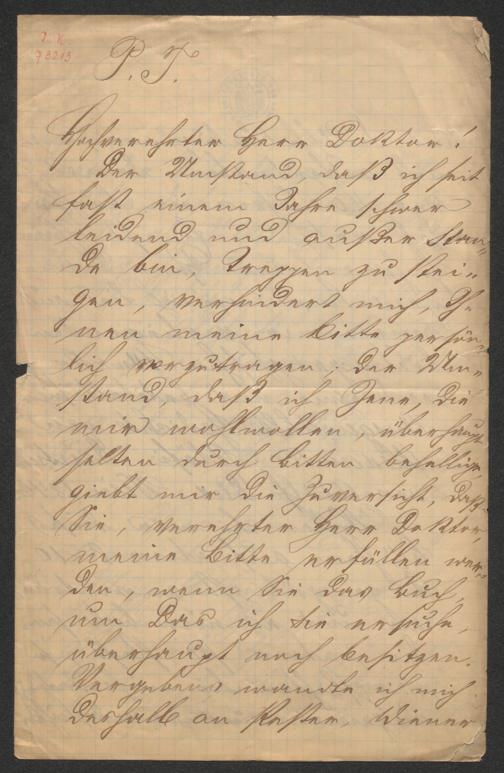 I. N.
78213
P. T.
Hochverehrter Herr Doktor!
Der Umstand daß ich seit
fast einem Jahre schwer
leidend und außer Stan-
de bin, Treppen zu stei-
gen, verhindert mich, Ih-
nen meine Bitte persön-
lich vorzutragen. Der Um-
stand, daß ich Jene, die
mir wohlwollen, überhaupt
selten durch Bitten behellige,
giebt mir die Zuversicht, daß
Sie, verehrter Herr Doktor,
meine Bitte erfüllen wer-
den, wenn Sie das Buch,
um das ich Sie ersuche,
überhaupt noch besitzen.
Vergebens wandte ich mich
deshalb an Pester, Wiener